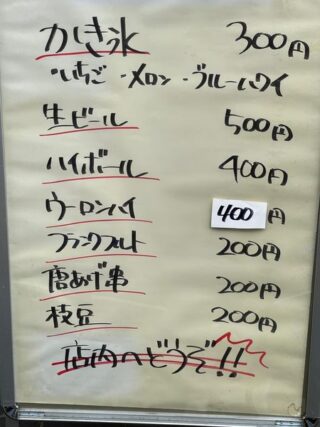 かき氷 300円
・いちご ・メロン ・ブルーハワイ
生ビール 500円
ハイボール 400円
ウーロンハイ 400円
フランクフルト 200円
唐あげ串 200円
枝豆 200円
店内へどうぞ!!